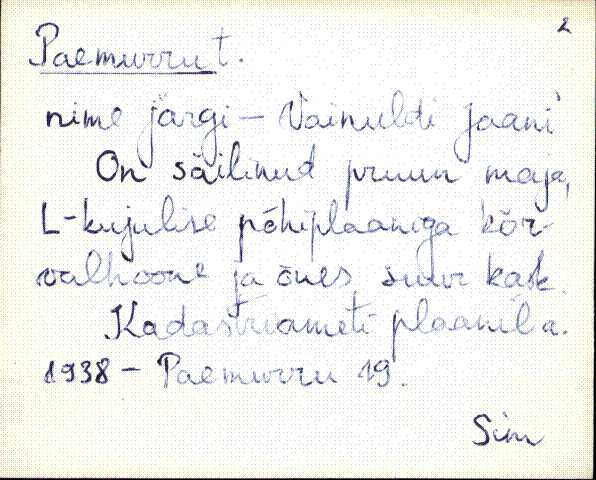 2
Paemurru t.
nime järgi – Vainuldi Jaani
On säilinud pruun maja,
L-kujulise põhiplaaniga kõr-
valhoone ja õues suur kask.
Kadastriameti plaanil a.
1938 – Paemurru 19.
Sim